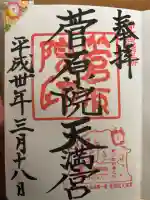 奉拝
菅原院天満宮
平成卅年三月十八日